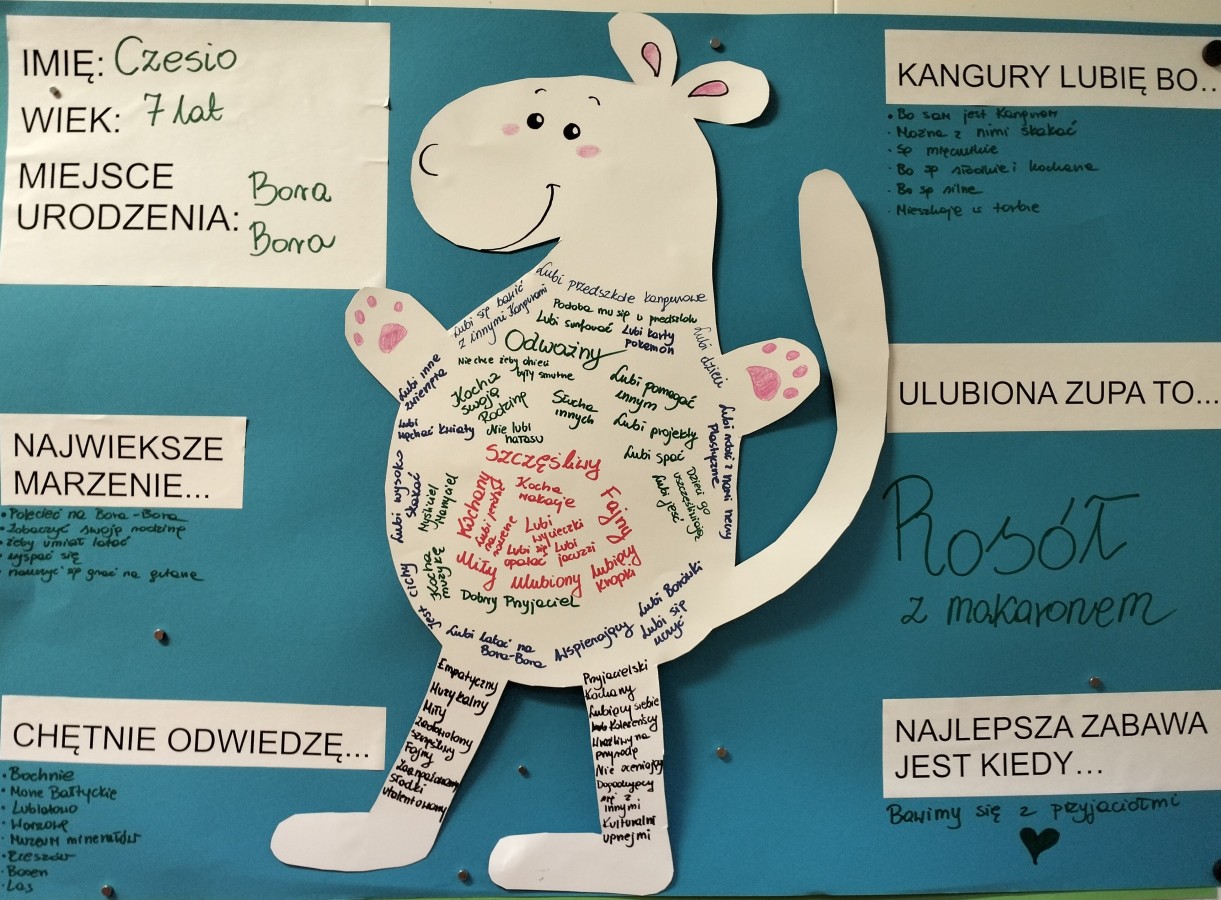 IMIĘ: Czesio
WIEK: 7 lat
MIEJSCE
URODZENIA: Bora
Bora
NAJWIEKSZE
MARZENIE...
• Polecieć na Bora-Bora
• Zobaczyć swoją rodzinę
• żeby umiał latać
• wyspać się
• nauczyć się grać na gitarze
CHĘTNIE ODWIEDZĘ...
• Bochnie
• Morze Bałtyckie
• Lubiatowo
• Warszawę
• Muzeum minerałów
• Rzeszów
• Basen
• Las
Lubi się bawić
z innymi Kangurami
Lubi przedszkole kangurowe
Podoba mu się w przedszkolu
Lubi surfować
Lubi karty
pokemon
Lubi dzieci
Odważny
Nie chce żeby dzieci
były smutne
Lubi inne
zwierzęta
Kocha
swoją
Rodzinę
Słucha
innych
Lubi pomagać
innym
Lubi
wąchać kwiaty
Nie lubi
hałasu
Lubi projekty
Lubi spać
Plastyczne
Szczęśliwy
Lubi wysoko
skakać
Myśliciel
Marzyciel
Kochany
Kocha
wakacje
Fajny
Dzieci go
uszczęśliwiają
Lubi jeść
Lubi
wycieczki
Lubi się
opalać
Lubi
jacuzzi
Miły
Ulubiony
Lubiący
Kropki
Kocha
muzykę
Jest cichy
Dobry Przyjaciel
Lubi latać na
Bora-Bora
Wspierający
Lubi Borówki
Lubi się
uczyć
Empatyczny
Muzykalny
Miły
zadowolony
szczęśliwy
Fajny
Słodki
utalentowany
Przyjacielski
Kochany
Lubiący siebie
Koleżeński
Wrażliwy na
przyrodę
Nie oceniający
Dogadujący
się z
innymi
Kulturalni
uprzejmi
KANGURY LUBIĘ BO...
• Bo sam jest Kangurem
• Można z nimi skakać
• Są mięciutkie
• Bo są słodkie i kochane
• Bo są silne
• Mieszkają w torbie
ULUBIONA ZUPA TO...
Rosół
z makaronem
NAJLEPSZA ZABAWA
JEST KIEDY...
Bawimy się z przyjaciółmi